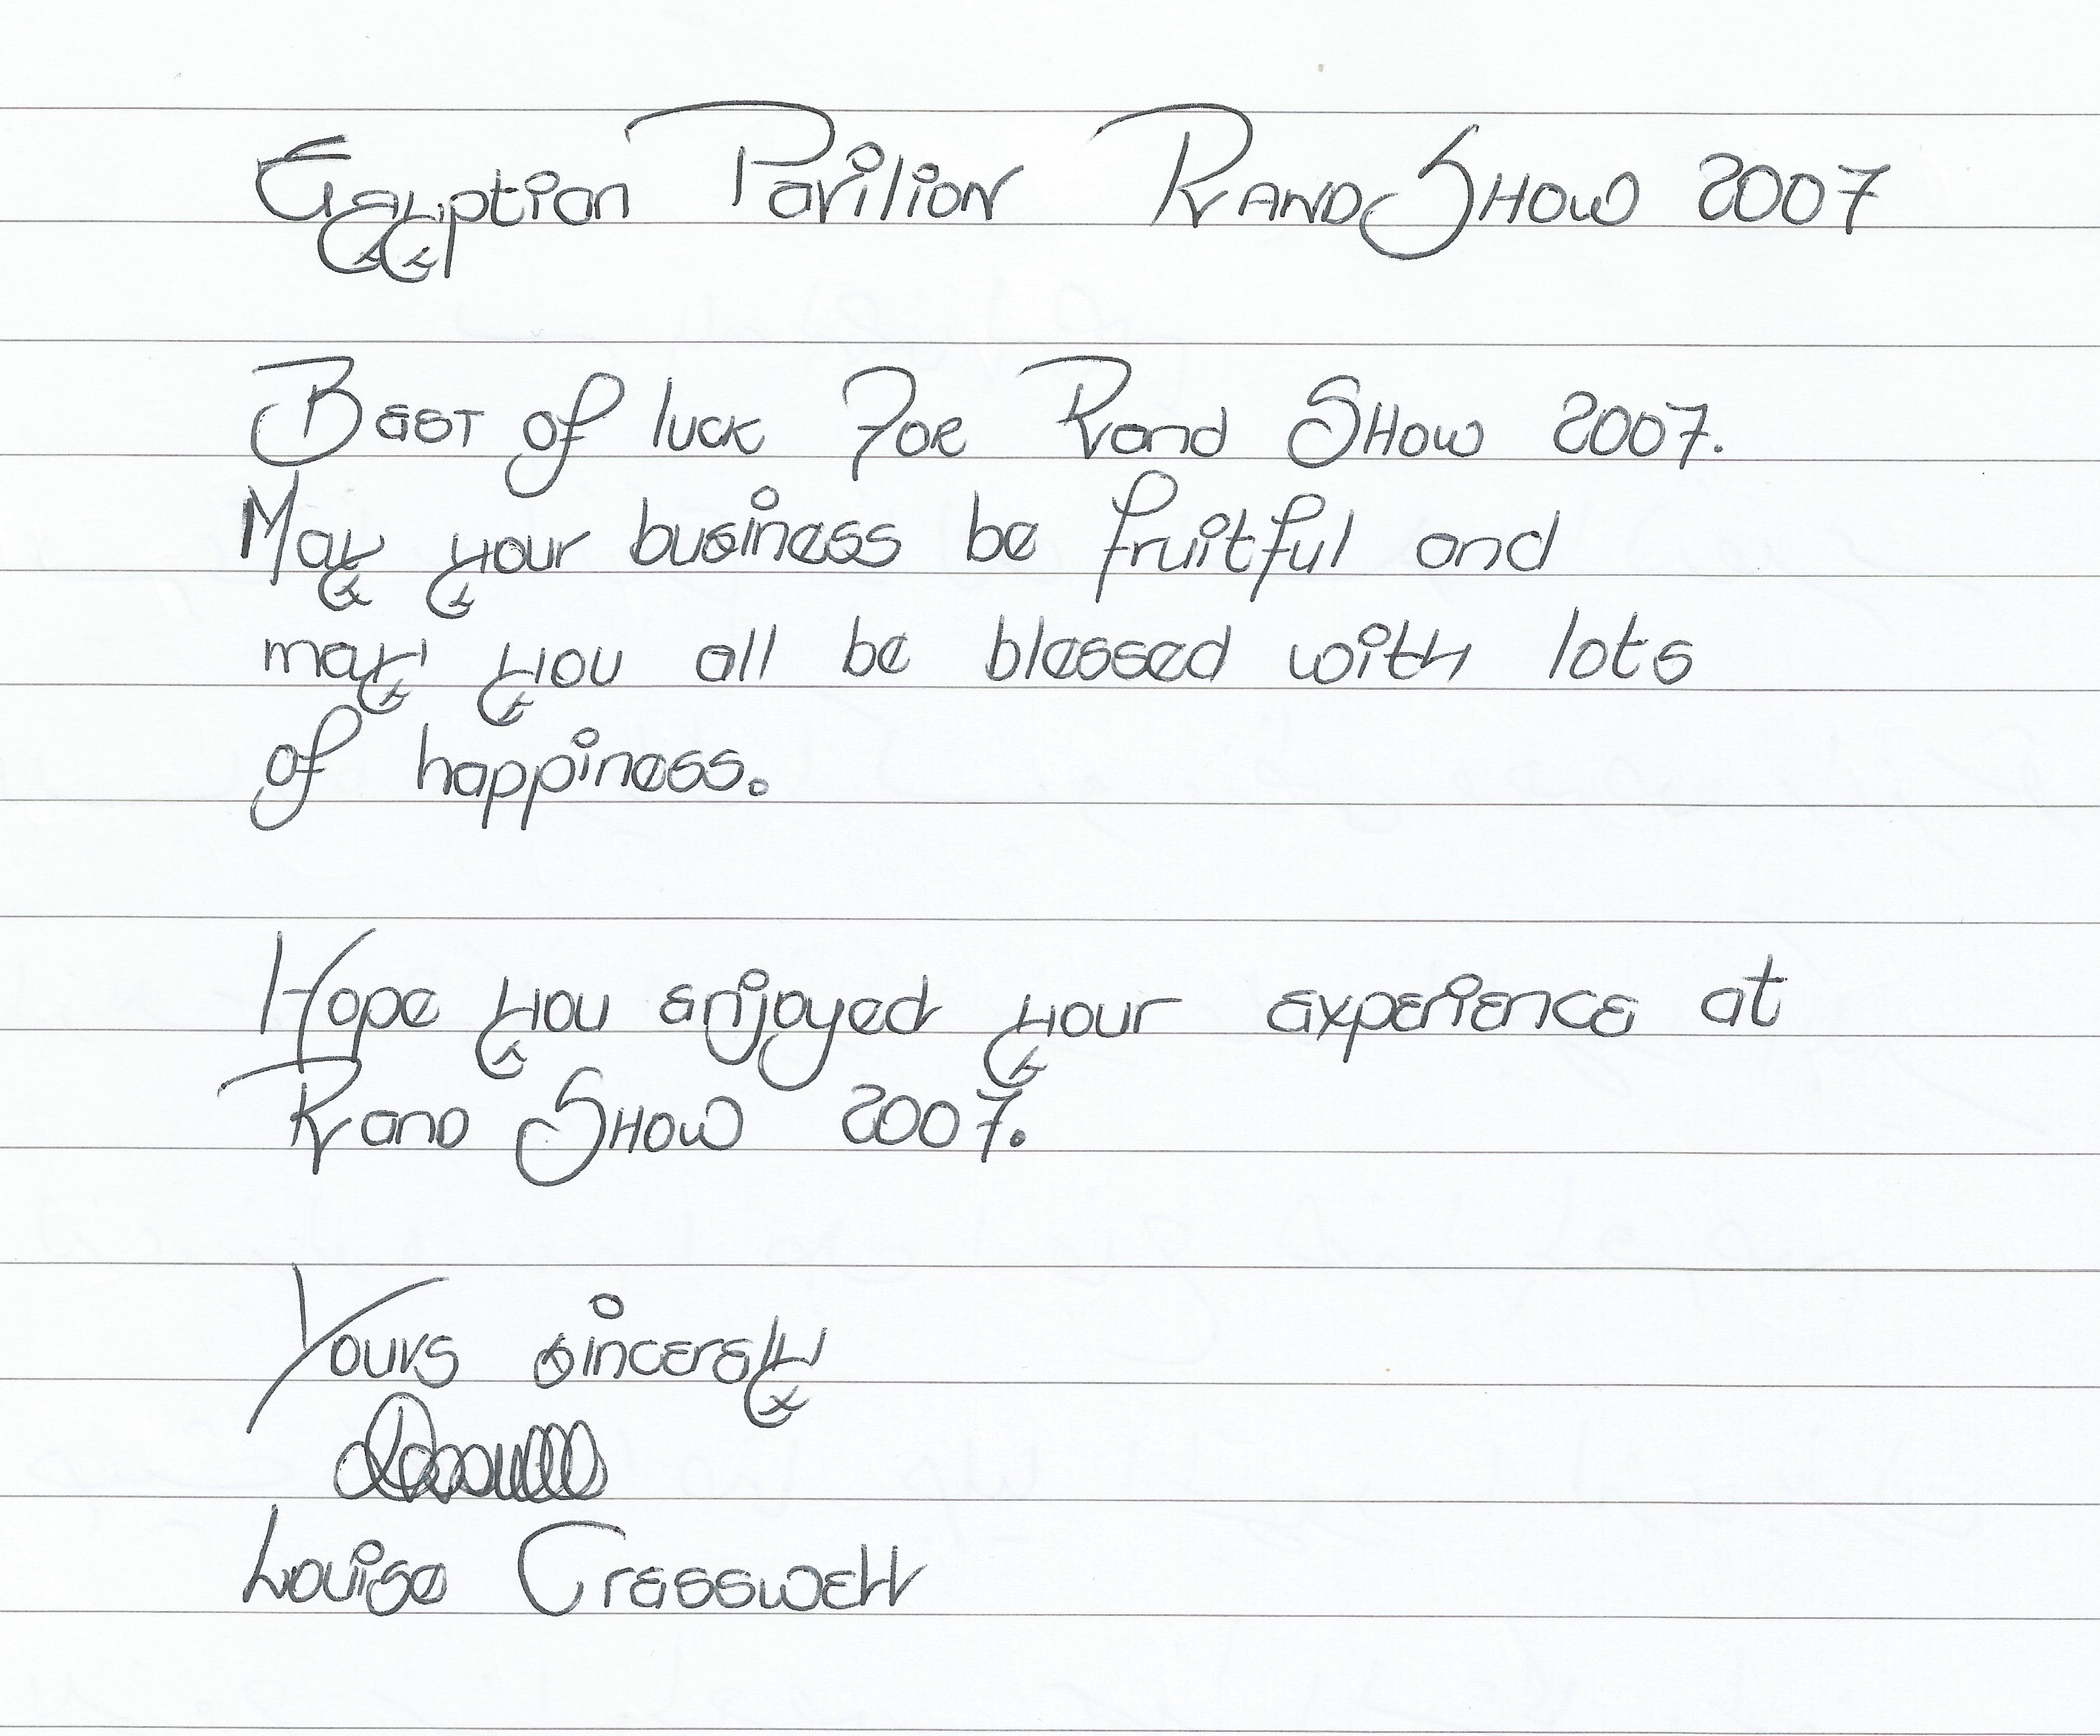 Egyptian Pavilion Rand Show 2007
Best of luck For Rand Show 2007.
May your business be fruitful and
may you all be blessed with lots
of happiness.
Hope you enjoyed your experience at
Rand Show 2007.
Yours sincerely
Louise Cresswell